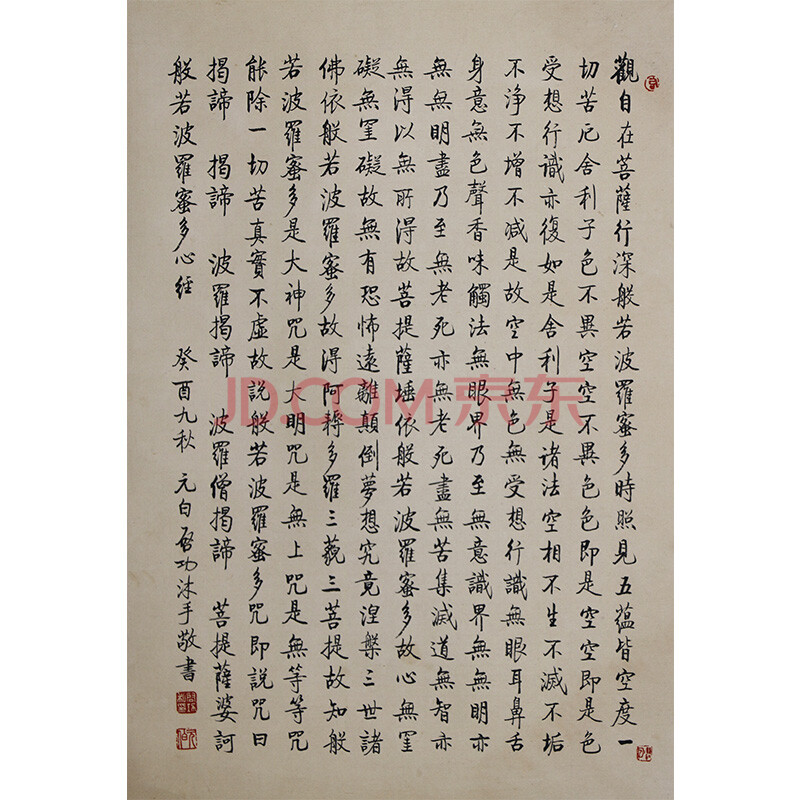 觀自在菩薩行深般若波羅蜜多時照見五蘊皆空度一
切苦厄舍利子色不異空空不異色色即是空空即是色
受想行識亦復如是舍利子是諸法空相不生不滅不垢
不浄不增不减是故空中無色無受想行識無眼耳鼻舌
身意無色聲香味觸法無眼界乃至無意識界無無明亦
無無明盡乃至無老死亦無老死盡無苦集滅道無智亦
無得以無所得故菩提薩埵依般若波羅蜜多故心無罣
礙無罣礙故無有恐怖遠離顛倒夢想究竟涅槃三世諸
佛依般若波羅蜜多故得阿耨多羅三藐三菩提故知般
若波羅蜜多是大神咒是大明咒是無上咒是無等等咒
能除一切苦真實不虛故説般若波羅蜜多咒即説咒曰
揭諦 揭諦 波羅揭諦 波羅僧揭諦 菩提薩婆訶
般若波羅蜜多心經 癸酉九秋 元白啓功沐手敬書
JD.COM 京东